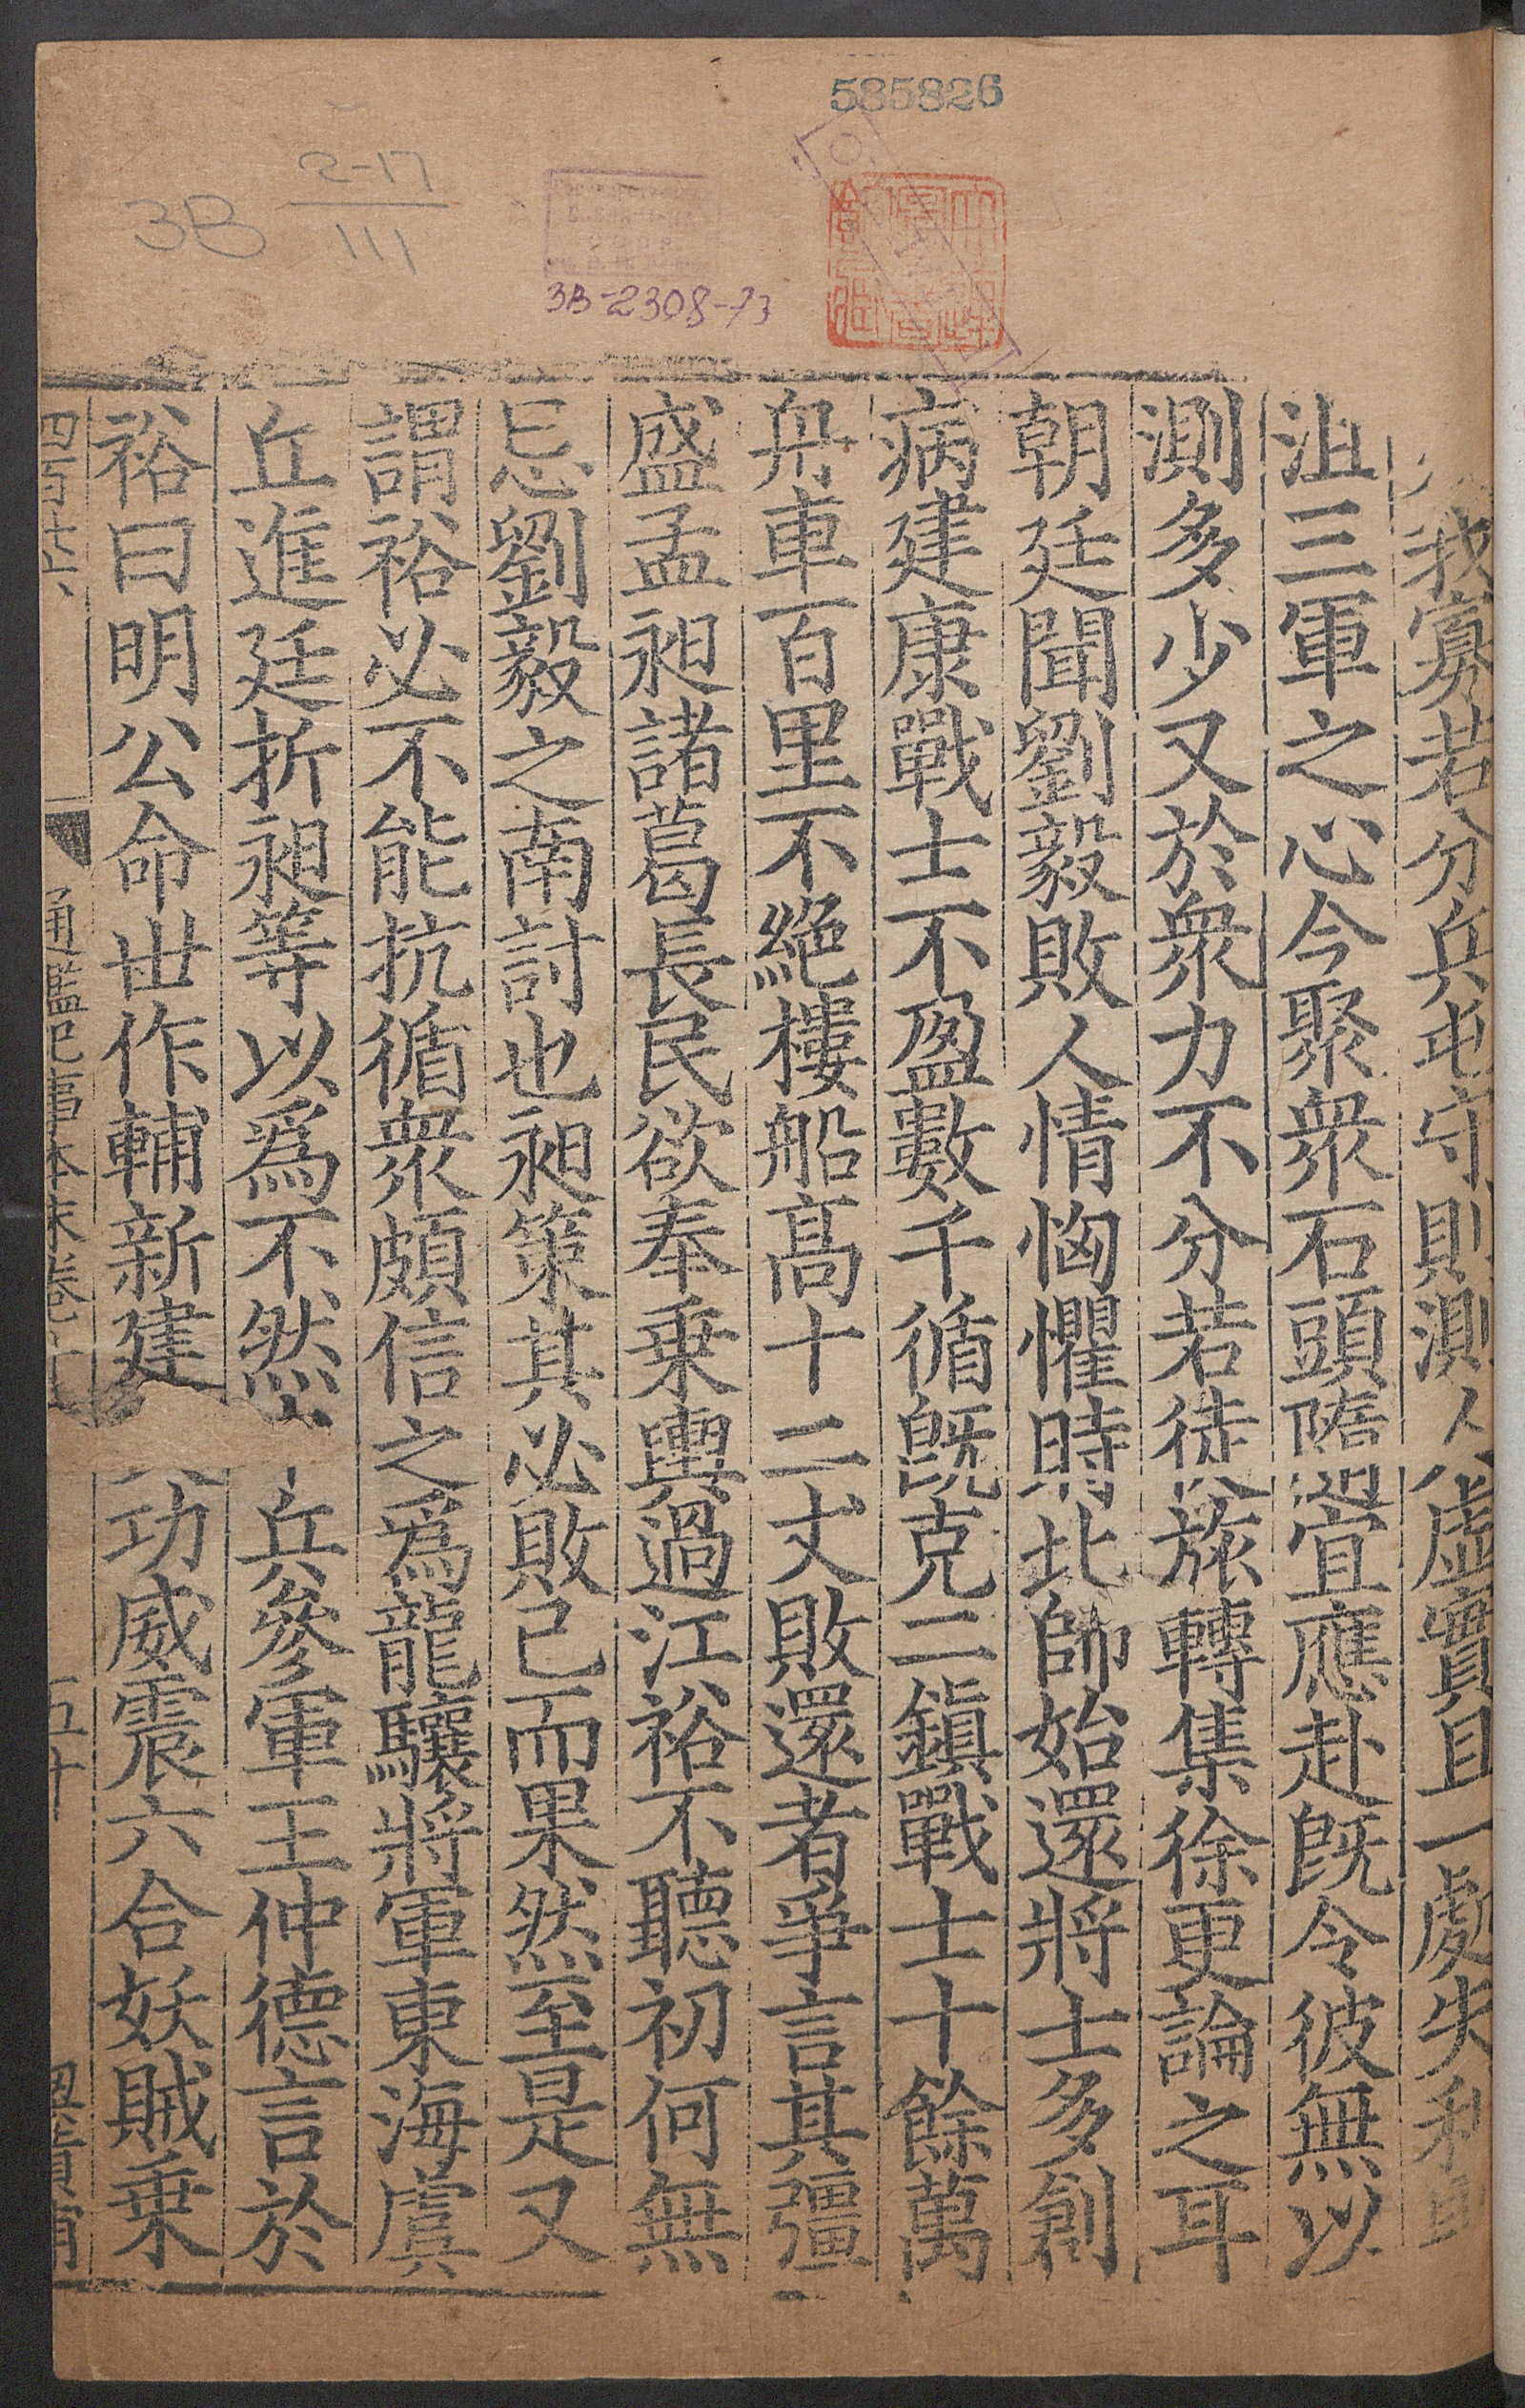 585826
3B 2-17
111
3B-2308-73
我寡若分兵屯守則測人虛實且一處失利
沮三軍之心今聚衆石頭隨宜應赴旣令彼無以
測多少又於衆力不分若徒旅轉集徐更論之耳
朝廷聞劉毅敗人情恟懼時北師始還將士多創
病建康戰士不盈數千循旣克二鎮戰士十餘萬
舟車百里不絶樓船高十二丈敗還者爭言其彊
盛孟昶諸葛長民欲奉乗輿過江裕不聽初何無
忌劉毅之南討也昶策其必敗已而果然至是又
謂裕必不能抗循衆頗信之爲龍驤將軍東海虞
丘進廷折昶等以爲不然 兵參軍王仲德言於
裕曰明公命世作輔新建 功威震六合妖賊乗
通鑑紀事本末卷十 五十